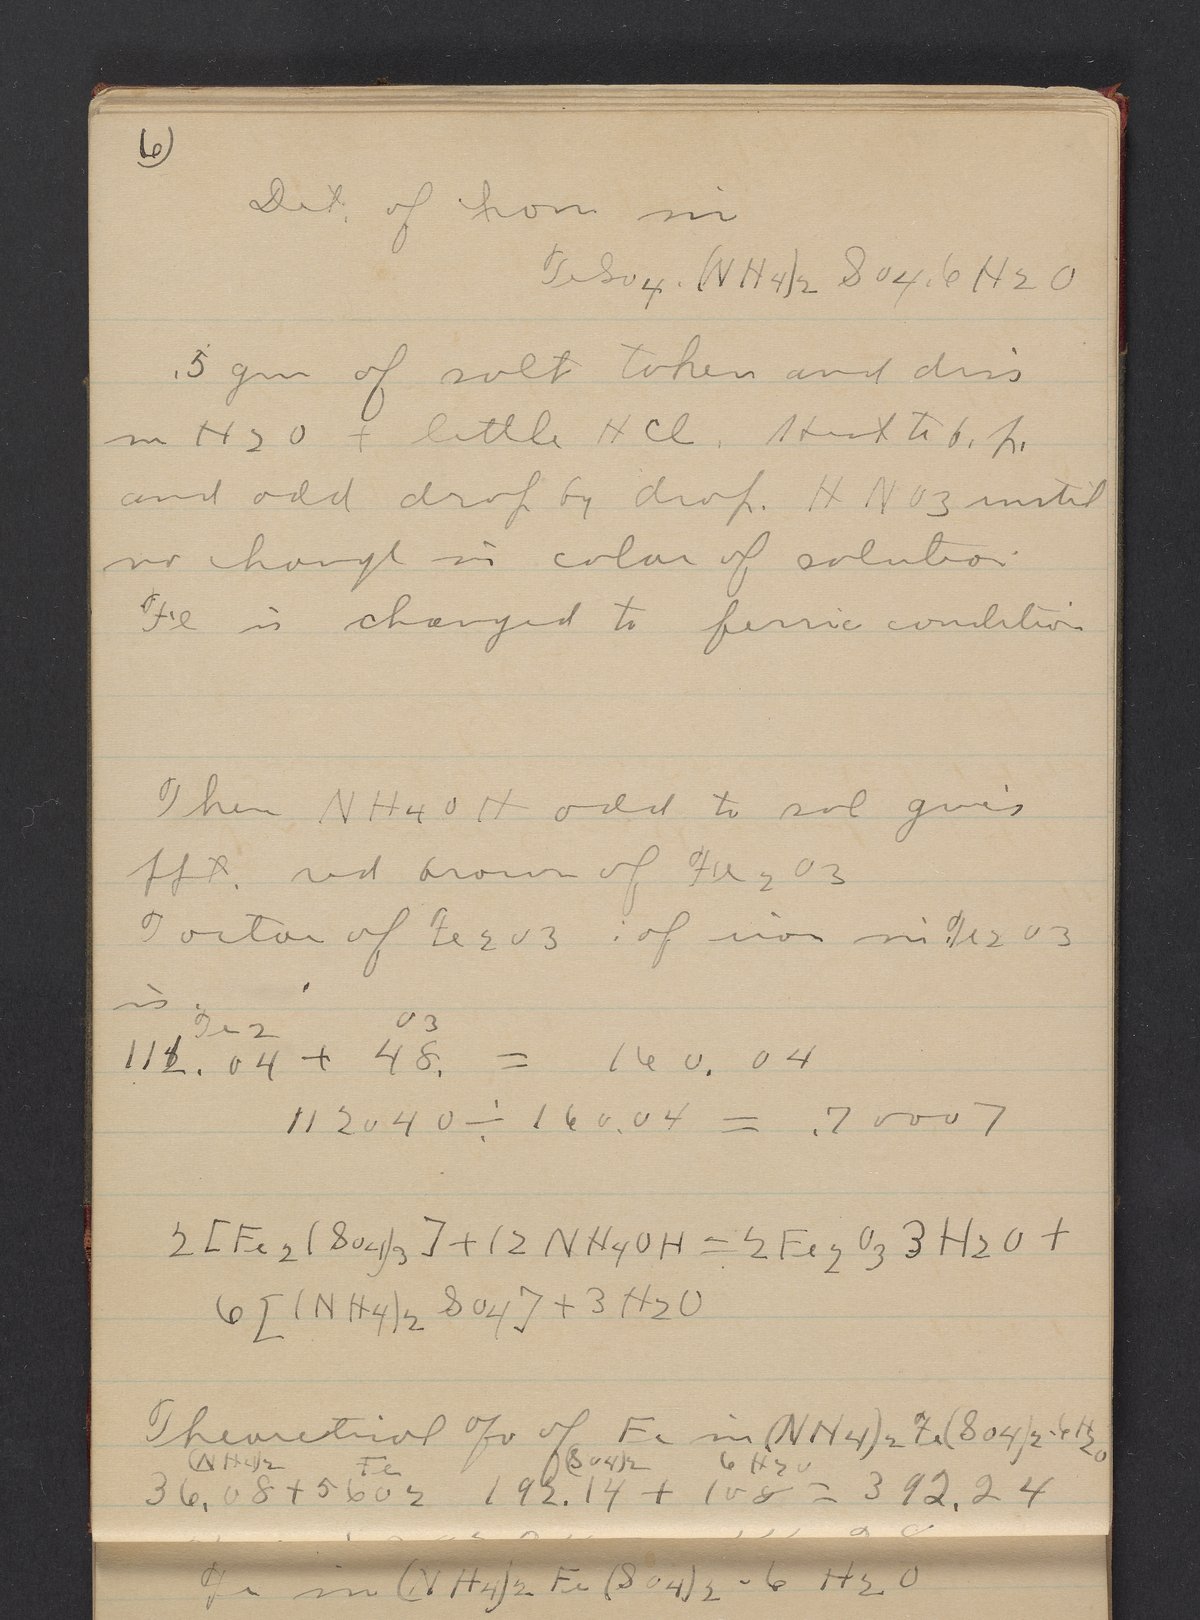 6)
Det. of Iron in
FeSO4.(NH4)2 SO4.6H2O
.5 gm of salt taken and diss
in H2O + little HCl. Heat to b.p.
and add drop by drop. HNO3 until
no change in color of solution
Fe is changed to ferric condition
Then NH4OH add to sol gives
ppt. red brown of Fe2O3
Factor of Fe2O3 : of iron in Fe2O3
is.
Fe2 O3
112.04 + 48. = 160.04
112040 ÷ 160.04 = .70007
2[Fe2(SO4)3] + 12NH4OH = 2Fe2O3 3H2O +
6[(NH4)2SO4] + 3H2O
Theoretical % of Fe in (NH4)2Fe(SO4)2·6H2O
(NH4)2 Fe (SO4)2 6H2O
36.08 + 5602 192.14 + 108 = 392.24
Fe in (NH4)2 Fe (SO4)2 - 6 H2O